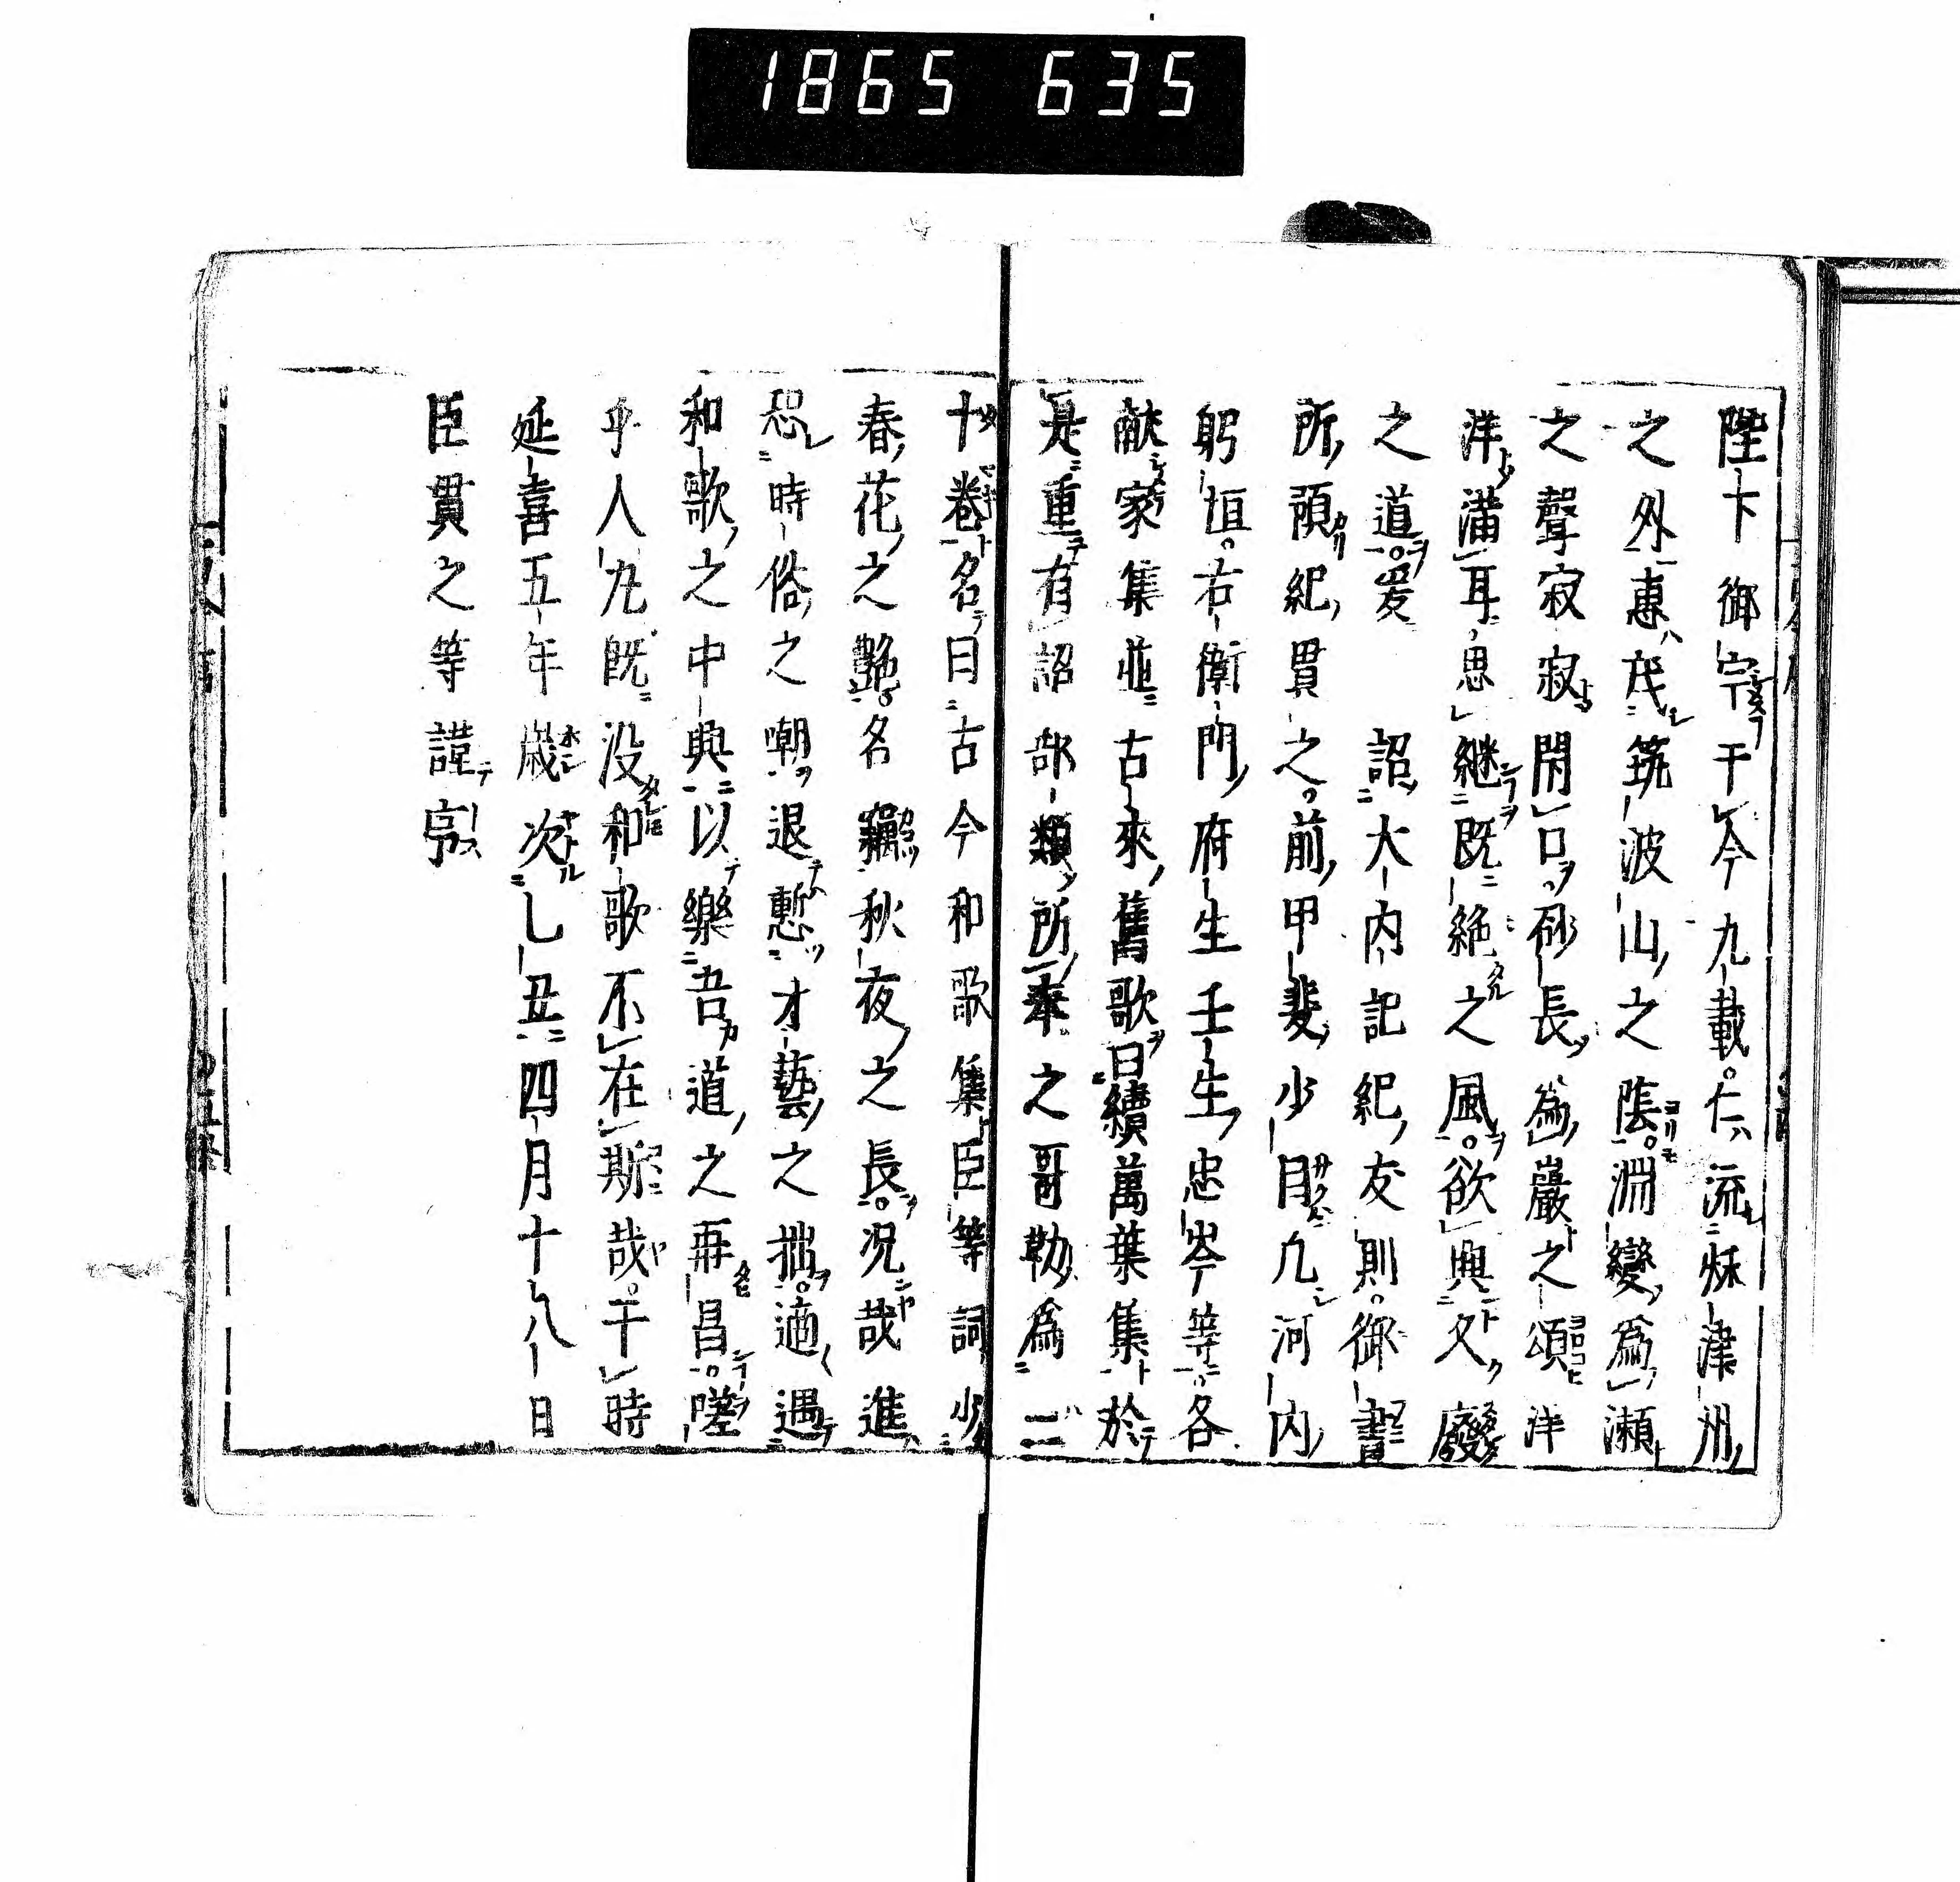 1865 635
陛下御宇于今九載。仁流秌津州
之外惠茂筑波山之陰。淵變為瀬
之聲寂寂閇口。砂長為巖之頌洋
洋滿耳思継既絶之風。欲興久廢
之道。爰 詔大内記紀友則。御書
所預紀貫之。前甲斐少目凡河内
躬恒。右衛門府生壬生忠岑等。各
獻家集並古來舊歌曰續萬葉集於
是重有詔部類所奉之哥勒為二
十卷名曰古今和歌集臣等詞少
春花之艶。名竊秋夜之長。况哉進
恐時俗之嘲退慙才藝之拙。適遇
和歌之中興以樂吾道之再昌。嗟
乎人丸既没和歌不在斯哉。于時
延喜五年歳次乙丑四月十八日
臣貫之等謹序